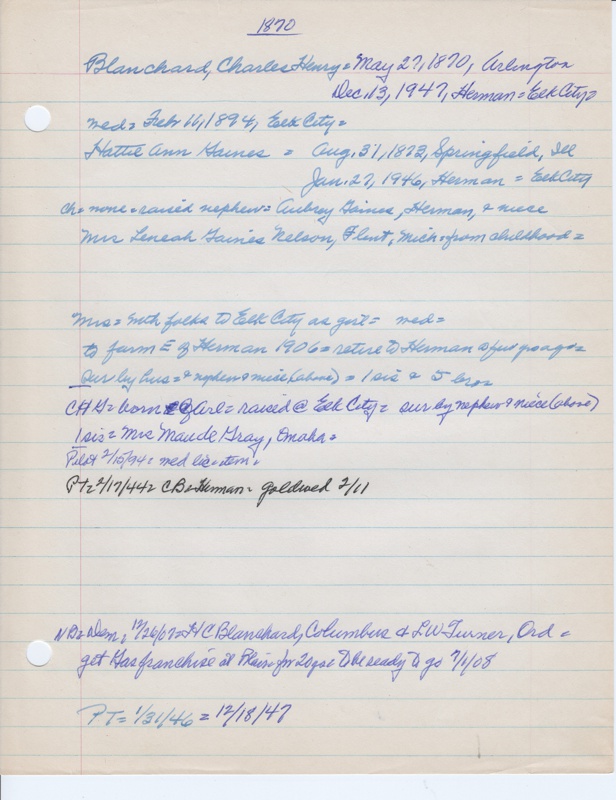 1870
Blanchard, Charles Henry = May 27, 1870, Arlington
Dec. 13, 1947, Herman = Elk City =
wed = Feb 11, 1894, Elk City =
Hattie Ann Gaines = Aug. 31, 1873, Springfield, Ill
Jan. 27, 1946, Herman = Elk City
ch = none = raised nephew = Aubrey Gaines, Herman, & niece
Mrs Leneah Gaines Nelson, Flint, Mich = from childhood =
Mrs = with folks to Elk City as girl = wed =
to farm E of Herman 1906 = retire to Herman yrs ago =
sur by hus = & nephew & niece (above) = 1 sis & 5 bros =
CHB = born Arl = raised @ Elk City = sur by nephew & niece (above)
1 sis = Mrs Maude Gray, Omaha =
Pilot 2/15/94 = wed lic item =
PT = 2/17/44 = CB = Herman = goldwed 2/11
NB = Dem, 12/26/07 = HC Blanchard, Columbus & LW Turner, Ord =
get Gas franchise at Blair for 20 yrs = To be ready to go 7/1/08
PT = 1/31/46 = 12/18/47